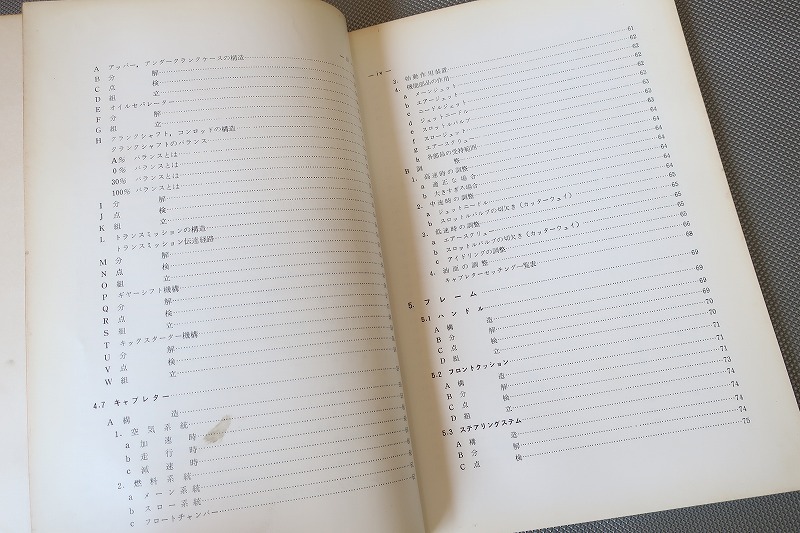 A アッパー，アンダークランクケースの構造
B 分 解
C 点 検
D 組 立
E オイルセパレーター
F 分 解
G 組 立
H クランクシャフト，コンロッドの構造
クランクシャフトのバランス
A% バランスとは
0% バランスとは
50% バランスとは
100% バランスとは
I 分 解
J 点 検
K 組 立
L トランスミッションの構造
トランスミッション伝達経路
M 分 解
N 点 検
O 組 立
P ギヤーシフト機構
Q 分 解
R 点 検
S 組 立
T キックスターター機構
U 分 解
V 点 検
W 組 立
4.7 キャブレター
A 構 造
1. 空気系統
a 加速時
b 走行時
c 減速時
2. 燃料系統
a メーン系統
b スロー系統
c フロートチャンバー
— iv —
3. 始動作用装置 61
4. 機能部品の作用 62
a メーンジェット 62
b エアージェット 62
c ニードルジェット 62
d ジェットニードル 62
e スロットルバルブ 63
f スロージェット 63
g エアースクリュ 64
h 各部品の受持範囲 64
B 調 整 64
1. 高速時の調整 64
a 適正な場合 64
b 大きすぎる場合 64
2. 中速時の調整 64
a ジェットニードル 65
b スロットルバルブの切欠き（カッターウェイ） 65
3. 低速時の調整 65
a エアースクリュ 65
b スロットルバルブの切欠き（カッターウェイ） 65
c アイドリングの調整 66
4. 油面の調整 68
キャブレターセッチング一覧表
5. フレーム 69
5.1 ハンドル 69
A 構 造 69
B 分 解 70
C 点 検 70
D 組 立 71
5.2 フロントクッション 71
A 構 造 71
B 分 解 73
C 点 検 74
D 組 立 74
5.3 ステアリングステム 74
A 構 造 74
B 分 解 75
C 点 検